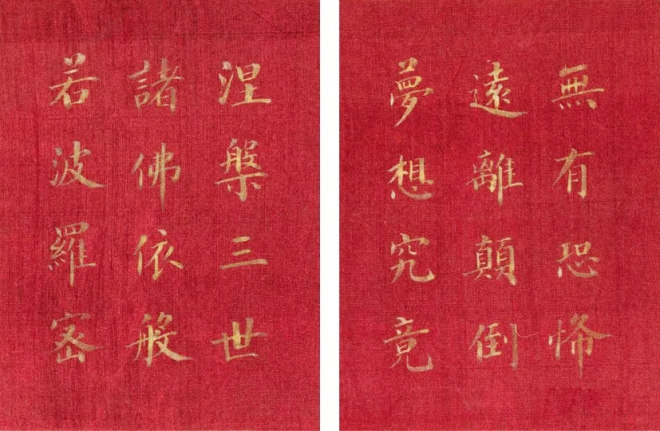 無有恐怖
遠離顛倒
夢想究竟
涅槃三世
諸佛依般
若波羅蜜